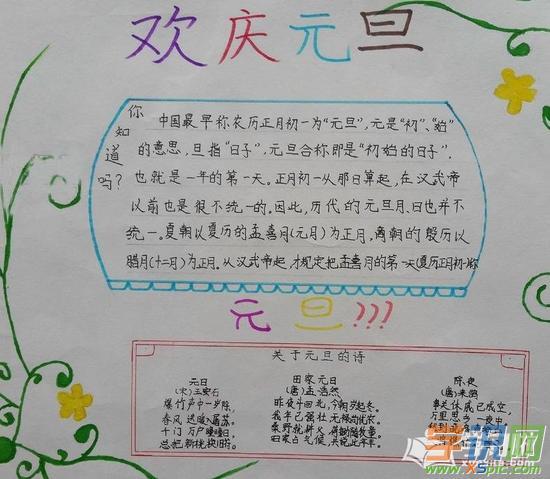 欢庆元旦
你知道吗?
中国最早称农历正月初一为“元旦”,元是“初”、“始”
的意思,旦指“日子”,元旦合称即是“初始的日子”,
也就是一年的第一天。正月初一从那日算起,在汉武帝
以前也是很不统一的。因此,历代的元旦月、日也并不
统一。夏朝以夏历的孟喜月(元月)为正月,商朝的殷历以
腊月(十二月)为正月。从汉武帝起,才规定把孟喜月的第一天(夏历正月初一)称
元旦???
关于元旦的诗
元日
(宋)王安石
爆竹声中一岁除,
春风送暖入屠苏。
千门万户曈曈日,
总把新桃换旧符。
田家元日
(唐)孟浩然
昨夜斗回北,今朝岁起东。
我年已强壮,无禄尚忧农。
桑野就耕父,荷锄随牧童。
田家占气候,共说此年丰。
除夜
(唐)来鹄
事关休戚已成空,
万里
学识网
www.xspic.com